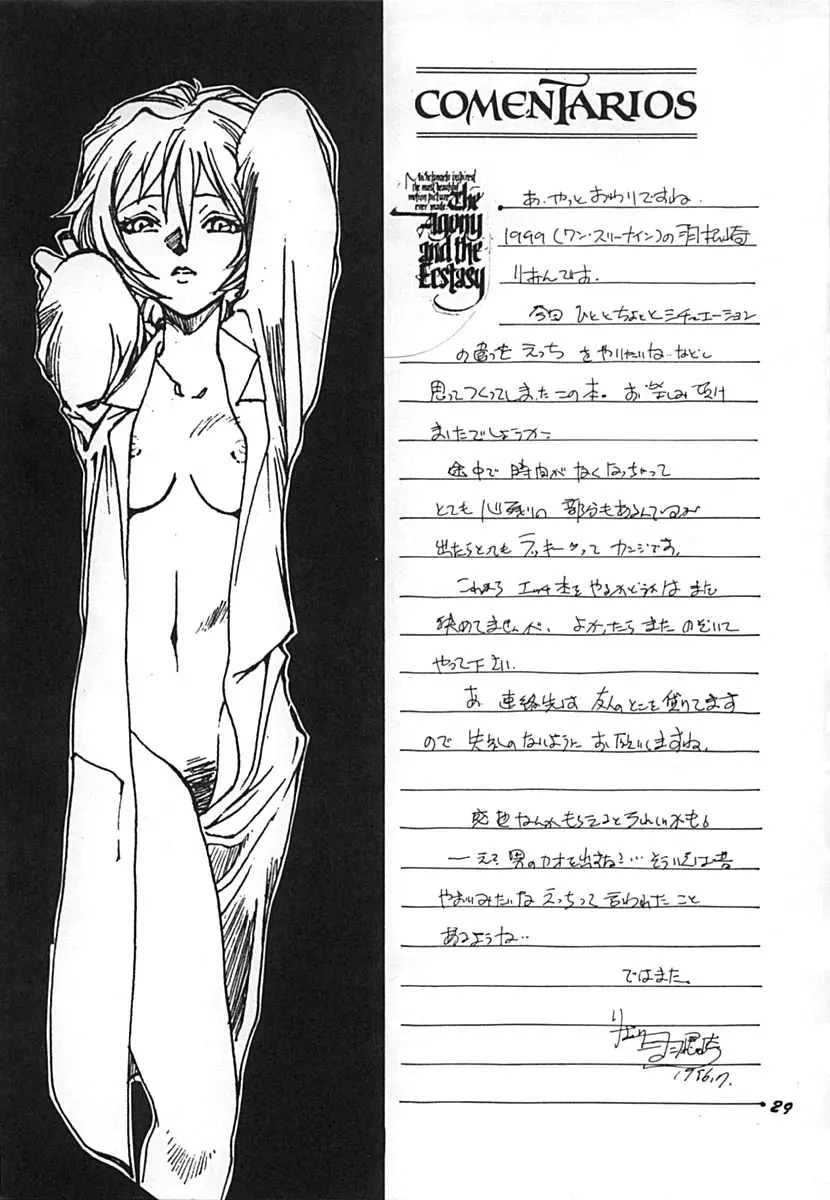 COMENTARIOS
Michelangelo inspired
the most beautiful
motion picture
ever made. The
Agony
and the
Ecstasy
あ、やっとおわりですね.
1999(ワン・スリーナイン)の羽根崎
りおんです.
今回 ひとと ちょっと シチュエーション
の違った えっち をやりたいね…などと
思ってつくってしまったこの本。お楽しみ頂け
ましたでしょうか?
途中で 時間が なくなっちゃって
とても 心残りの 部分もあるんでいるが
出たらとても ラッキーって カンジです。
これから エッチ本を やるかどうかは まだ
決めてませんが、よかったら また のぞいて
やって下さい.
あ 連絡先は 友人のとこを借りてます
ので 失礼のないように お願いしますね.
感想なんか もらえると うれしいかも。
一え? 男のカオを出すな?…そういえば昔
やおいみたいな えっちって 言われたこと
あるような…
ではまた。
1996.7.
29